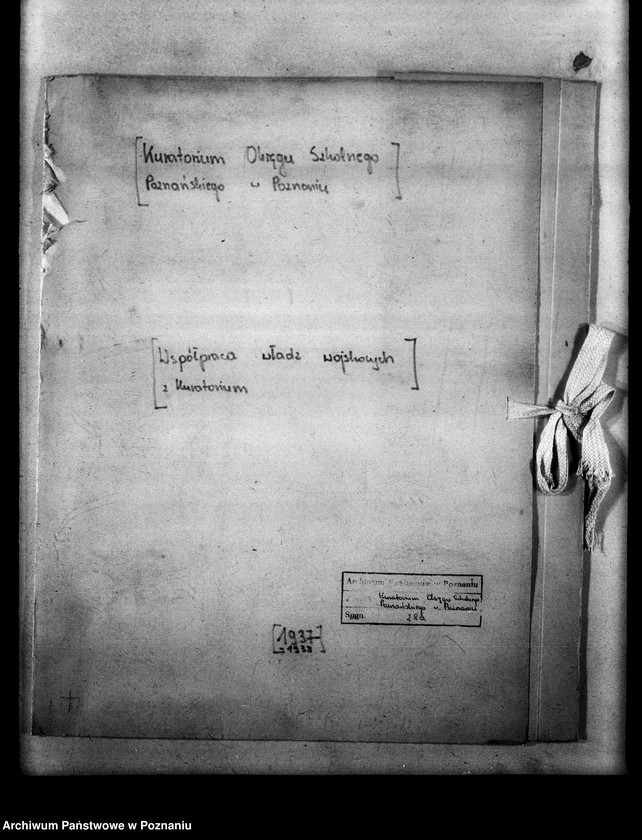 [Kuratorium Okręgu Szkolnego
Poznańskiego w Poznaniu]
[Współpraca władz wojskowych
z Kuratorium]
Archiwum Państwowe w Poznaniu
Kuratorium Okręgu Szkolnego
Poznańskiego w Poznaniu
Sygn. 28a
[1937
-1938]
Archiwum Państwowe w Poznaniu